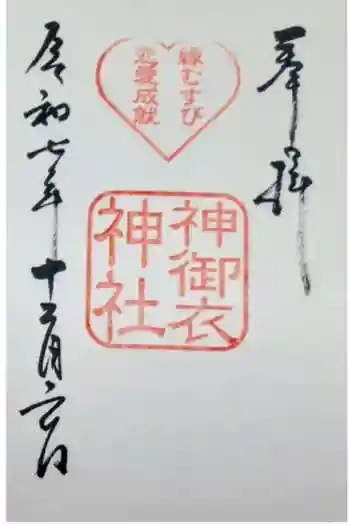 奉拝
縁むすび
恋愛成就
神御衣
神社
令和七年十二月六日